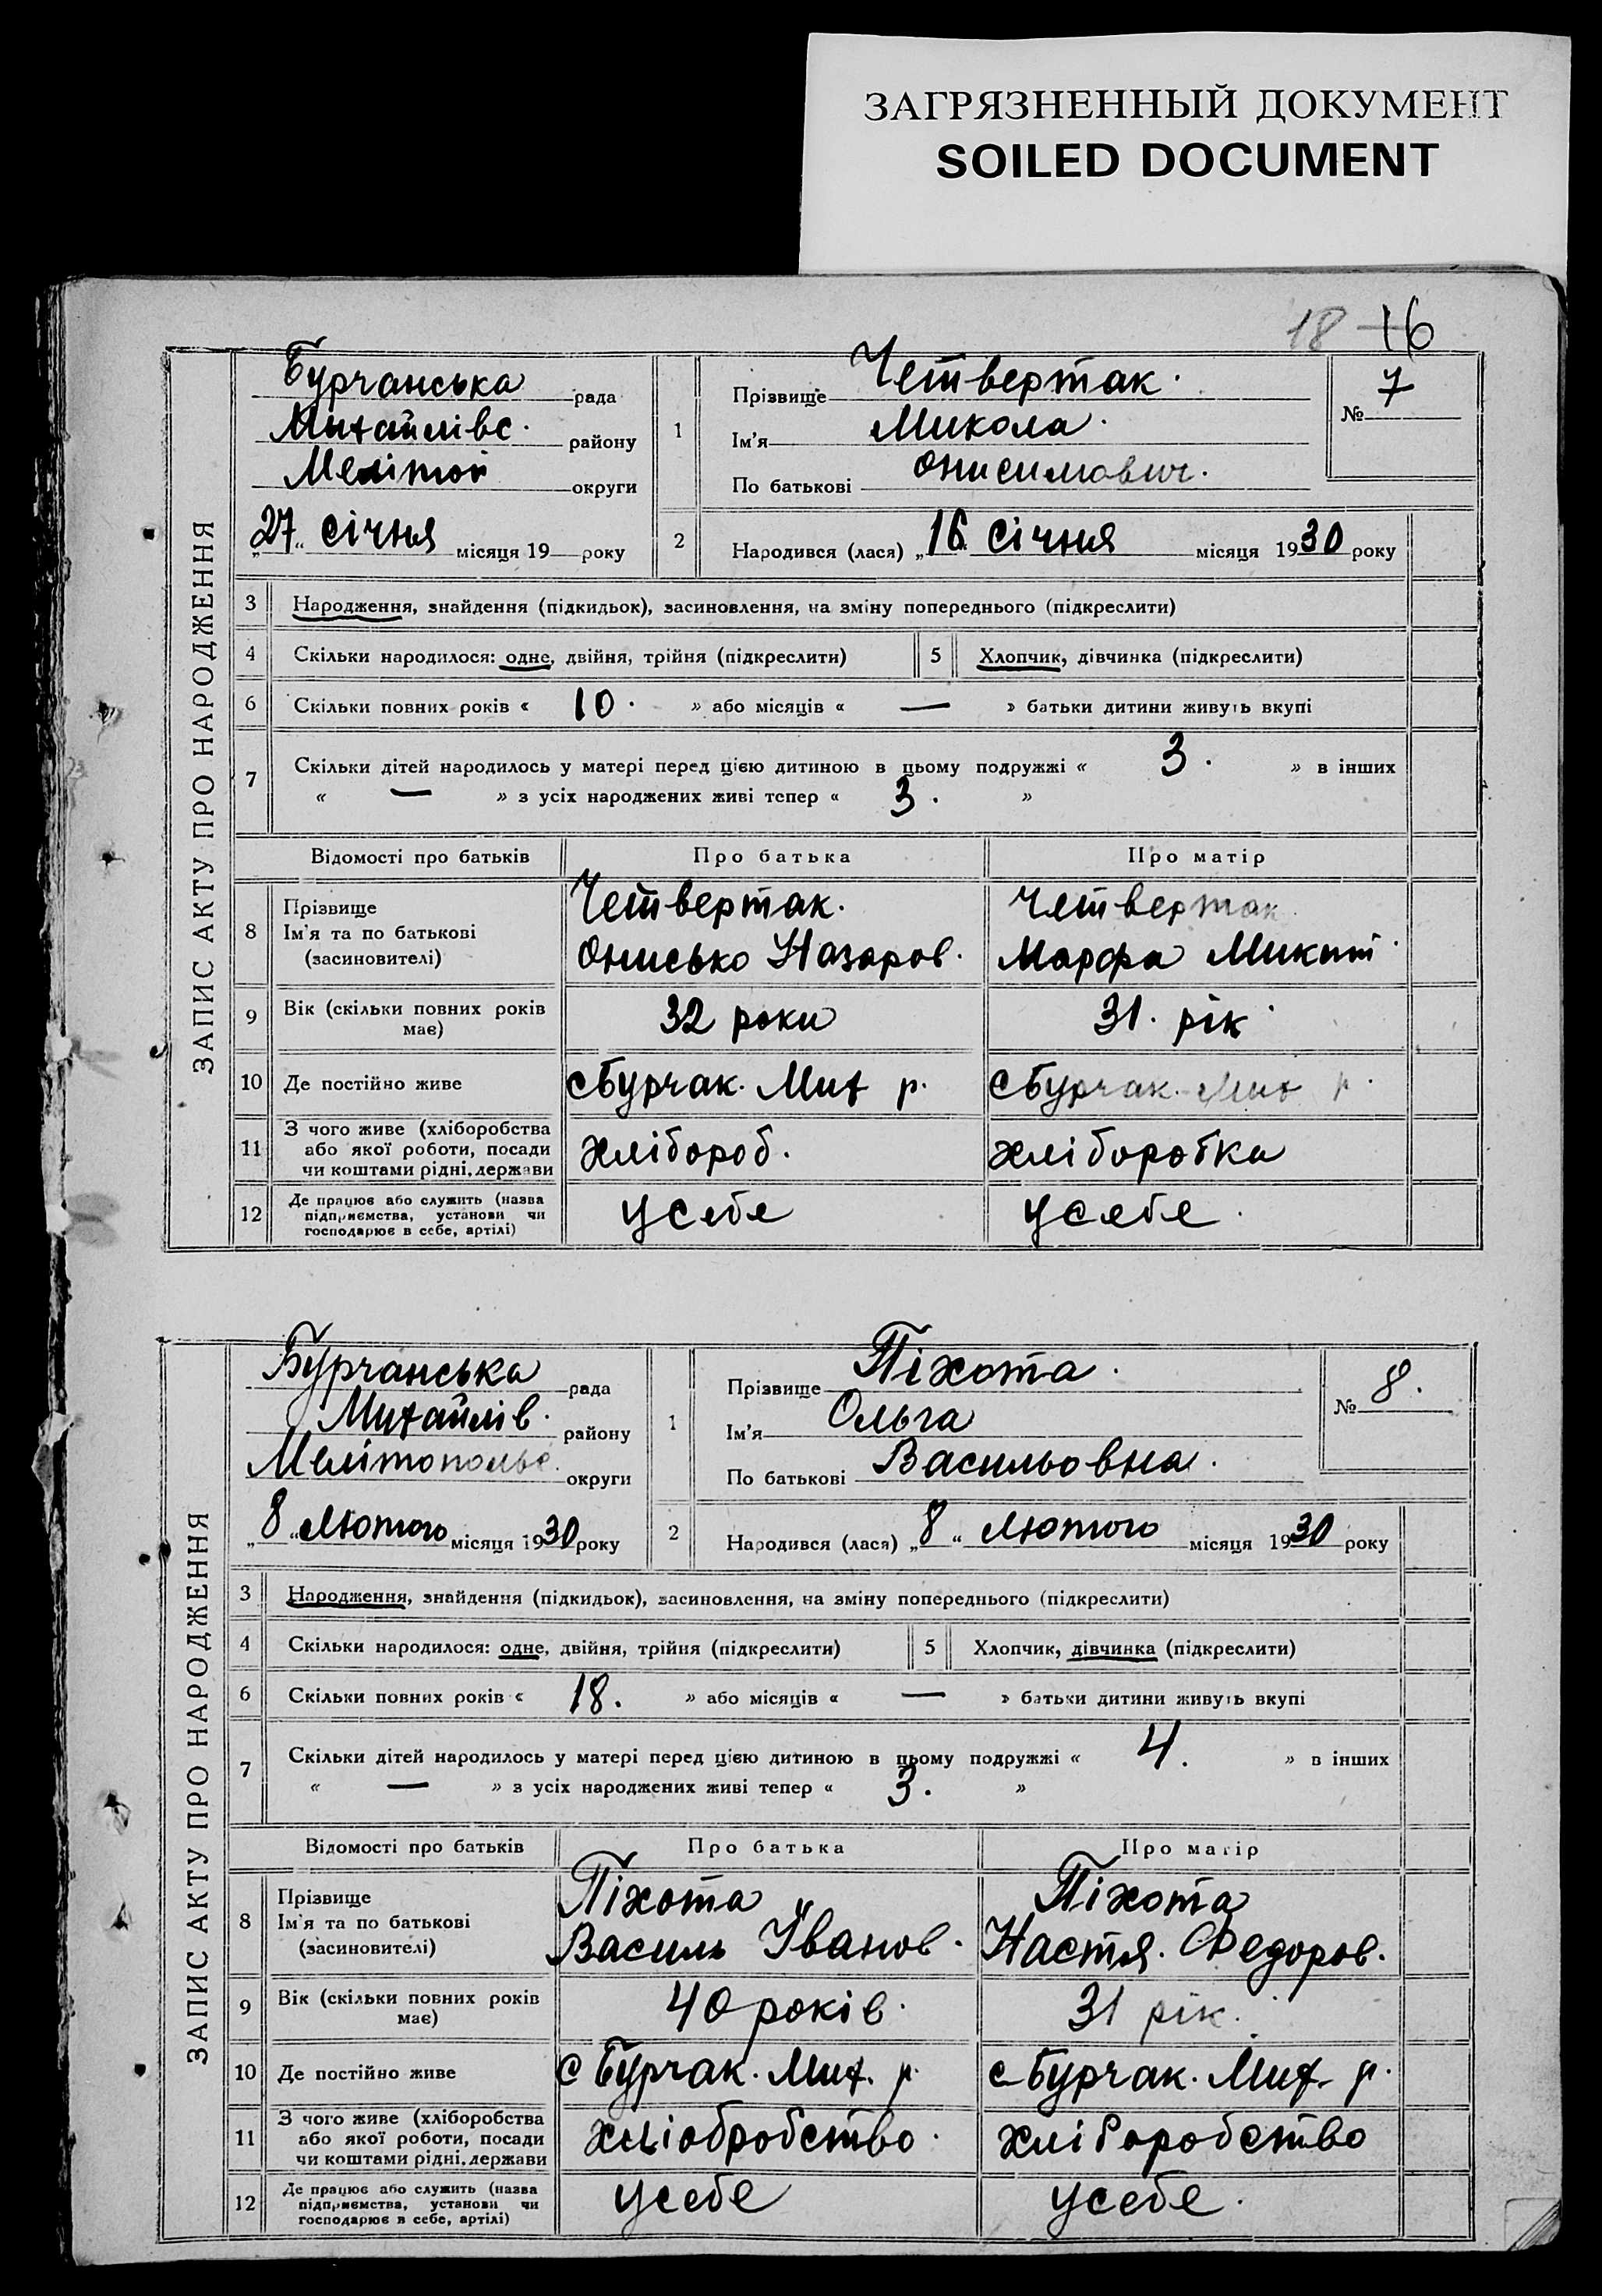 ЗАГРЯЗНЕННЫЙ ДОКУМЕНТ
SOILED DOCUMENT
18 16
ЗАПИС АКТУ ПРО НАРОДЖЕННЯ
Бурчанська рада
Михайлівс. району
Мелітоп округи
„27“ січня місяця 19 року
1 Прізвище Четвертак.
Ім'я Микола.
По батькові Онисимович.
№ 7
2 Народився (лася) „16 січня місяця 1930 року
3 Народження, знайдення (підкидьок), засиновлення, на зміну попереднього (підкреслити)
4 Скільки народилося: одне, двійня, трійня (підкреслити) 5 Хлопчик, дівчинка (підкреслити)
6 Скільки повних років « 10. » або місяців « — » батьки дитини живуть вкупі
7 Скільки дітей народилось у матері перед цією дитиною в цьому подружжі « 3. » в інших
« — » з усіх народжених живі тепер « 3. »
Відомості про батьків Про батька Про матір
8 Прізвище Ім'я та по батькові (засиновителі)
Четвертак. Четвертак
Онисько Назаров. Марфа Микит.
9 Вік (скільки повних років має) 32 роки 31. рік
10 Де постійно живе с Бурчак. Мих р. с Бурчак. Мих р.
11 З чого живе (хліборобства
або якої роботи, посади
чи коштами рідні, держави
хлібороб. хліборобка
12 Де працює або служить (назва
підприємства, установи чи
господарює в себе, артілі)
усебе усебе.
ЗАПИС АКТУ ПРО НАРОДЖЕННЯ
Бурчанська рада
Михайлів. району
Мелітопольс. округи
„8“ Лютого місяця 1930 року
1 Прізвище Піхота.
Ім'я Ольга
По батькові Васильовна.
№ 8.
2 Народився (лася) „8“ Лютого місяця 1930 року
3 Народження, знайдення (підкидьок), засиновлення, на зміну попереднього (підкреслити)
4 Скільки народилося: одне, двійня, трійня (підкреслити) 5 Хлопчик, дівчинка (підкреслити)
6 Скільки повних років « 18. » або місяців « — » батьки дитини живуть вкупі
7 Скільки дітей народилось у матері перед цією дитиною в цьому подружжі « 4. » в інших
« — » з усіх народжених живі тепер « 3. »
Відомості про батьків Про батька Про матір
8 Прізвище Ім'я та по батькові (засиновителі)
Піхота Піхота
Василь Іванов. Настя. Федоров.
9 Вік (скільки повних років має) 40 років. 31 рік.
10 Де постійно живе с Бурчак. Мих. р. с Бурчак. Мих. р.
11 З чого живе (хліборобства
або якої роботи, посади
чи коштами рідні, держави
хліобробство. хліборобство
12 Де працює або служить (назва
підприємства, установи чи
господарює в себе, артілі)
усебе усебе.